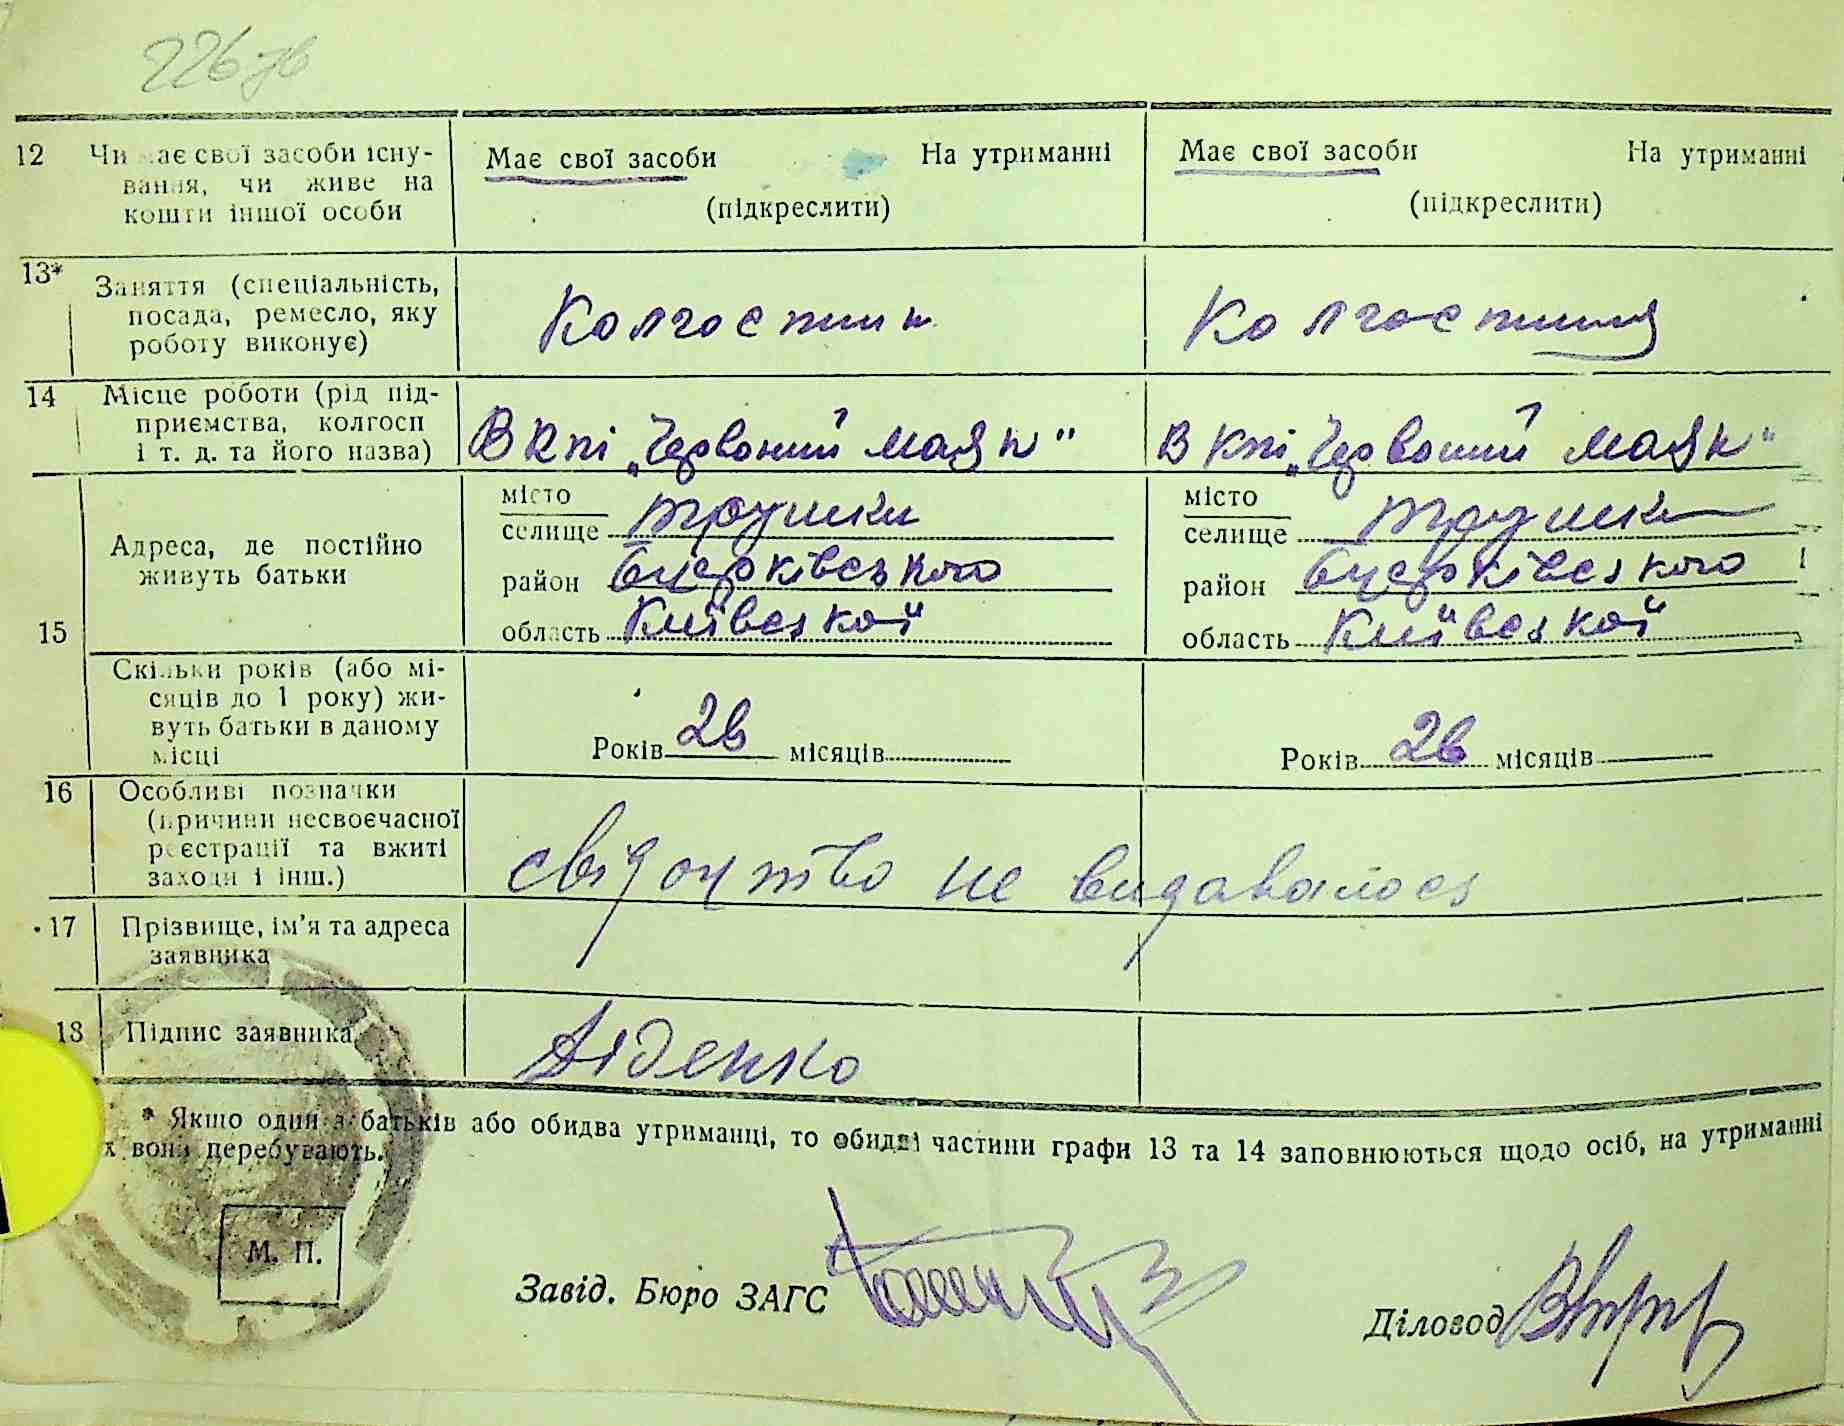 226 зв
12 Чи має свої засоби існу-
вання, чи живе на
кошти іншої особи
Має свої засоби На утриманні
(підкреслити)
Має свої засоби На утриманні
(підкреслити)
13* Заняття (спеціальність,
посада, ремесло, яку
роботу виконує)
Колгоспник
Колгоспниця
14 Місце роботи (рід під-
приємства, колгосп
і т. д. та його назва)
В кпі „Червоний маяк"
В кпі „Червоний маяк"
15
Адреса, де постійно
живуть батьки
місто
селище Трушки
район Бцерківського
область Київської
місто
селище Трушки
район Бцерківського
область Київської
Скільки років (або мі-
сяців до 1 року) жи-
вуть батьки в даному
місці
Років 26 місяців
Років 26 місяців
16 Особливі позначки
(причини несвоєчасної
реєстрації та вжиті
заходи і інш.)
свідоцтво не видавалось
17 Прізвище, ім'я та адреса
заявника
18 Підпис заявника
Діденко
* Якщо один з батьків або обидва утриманці, то обидві частини графи 13 та 14 заповнюються щодо осіб, на утриманні
х вони перебувають.
М. П.
Завід. Бюро ЗАГС
Діловод